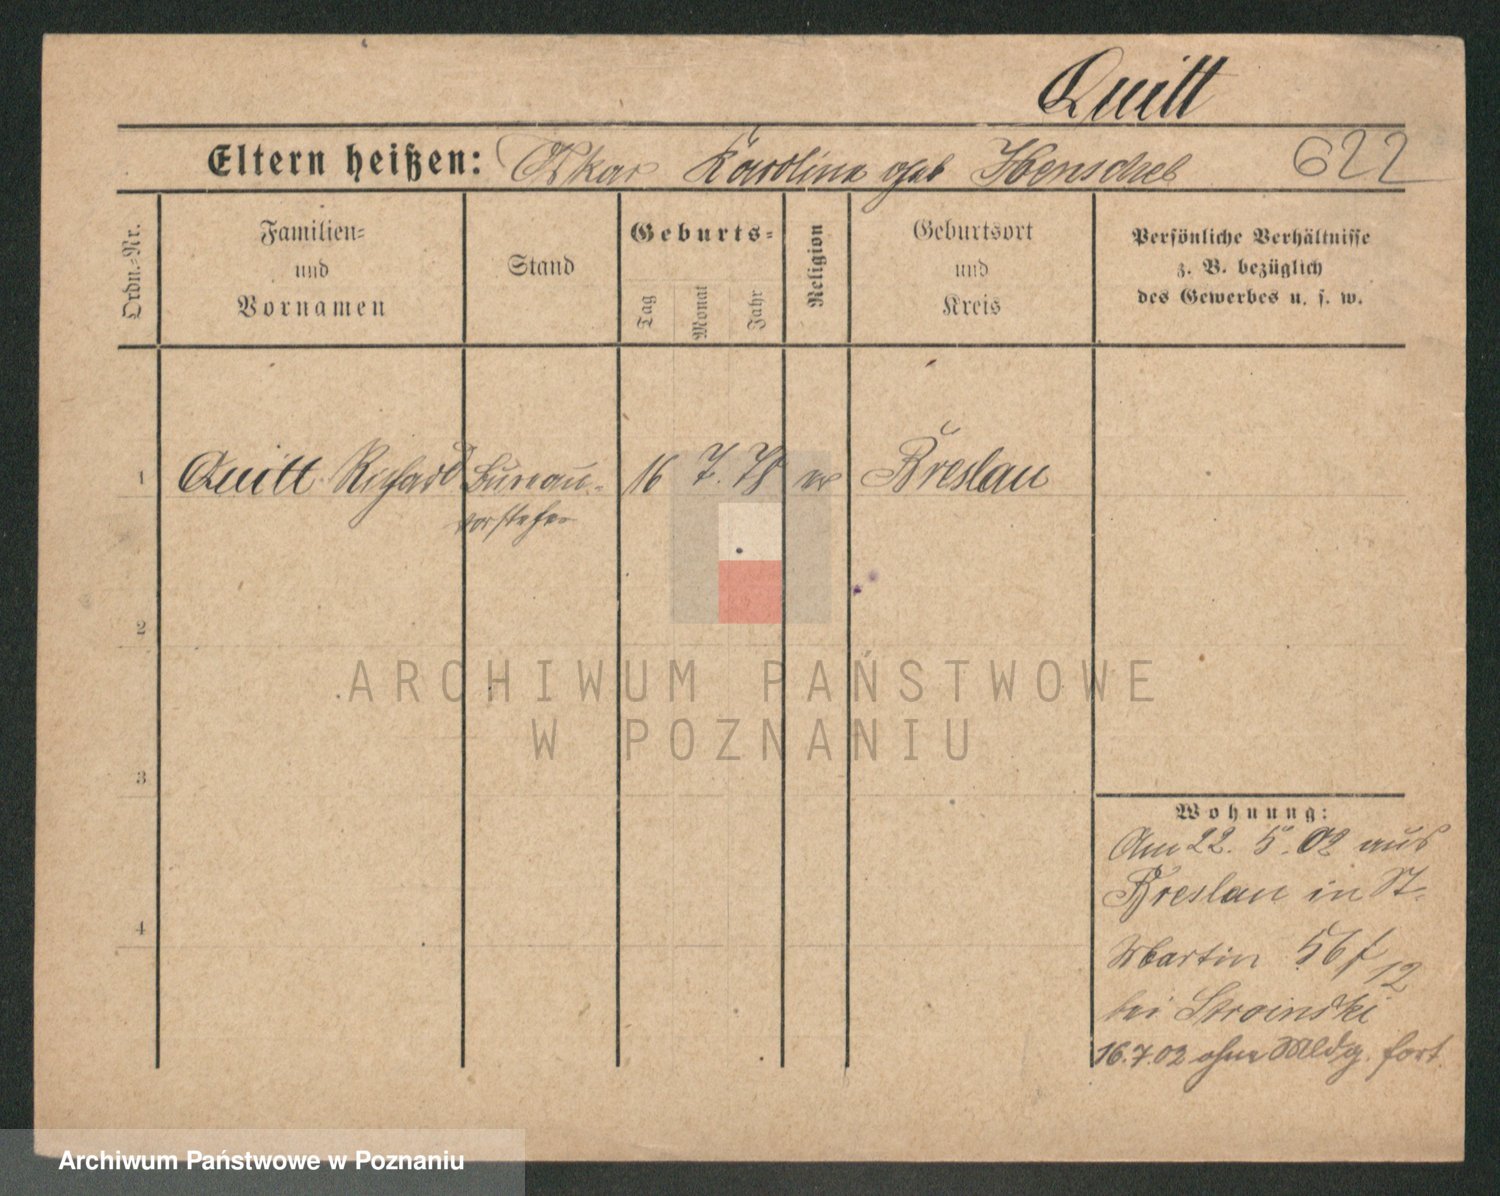 Quitt
Eltern heißen: Oskar Karolina geb Henschel 622
Ordn.-Nr.
Familien-
und
Vornamen
Stand
Geburts-
Tag
Monat
Jahr
Religion
Geburtsort
und
Kreis
Persönliche Verhältnisse
z. B. bezüglich
des Gewerbes u. s. w.
1 Quitt Richard Bureau- 16 7. 78 ev Breslau
vorsteher
2
3
4
Wohnung:
Am 22. 5. 02 aus
Breslau in St.
Martin 56 f/12
bei Stroinski
16.7.02 ohne Meldg. fort
ARCHIWUM PAŃSTWOWE
W POZNANIU
Archiwum Państwowe w Poznaniu